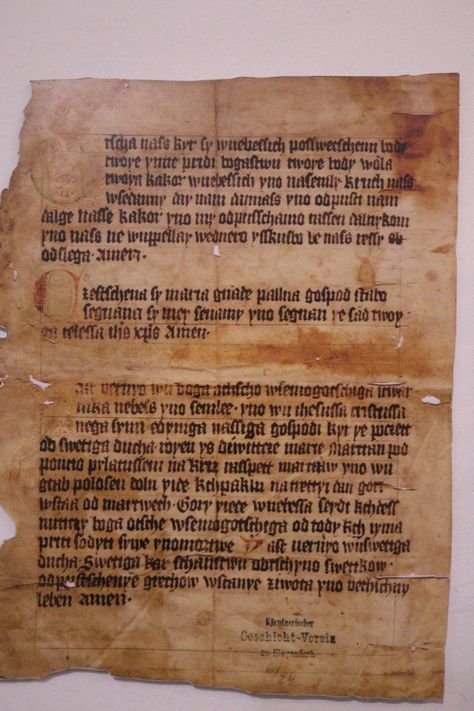 tscha nass kyr sy wnebessich posswetschenu body
twoye ynne pridi bogastwu twoye body wola
twoya kakor wnebessich yno nasemly kruch nass
wsedanny day nam dannass yno odpusti nam
dalge nasse kakor yno my odpusschamo nassen dalnykom
yno nass ne wuppellay wednero ysskusbo le nass ressy od
od slega Amen.
Czestschena sy maria gnade pallna gospod stabo
segnana sy mer senamy yno segnan ye sad twoy
ga telessa ihs xps Amen.
ast veruyo wu boga otscho wsemogotschiga stwar
nika nebess yno semlee. yno wu ihesussa cristussa
nega synu edyniga nassiga gospodi kyr ye poczett
od swetiga ducha royen ys dewitcze marie martran pod
poncio pylatussem na krisz rasspett martaw yno wu
grab polosen dolu yide kchpaklu na trettyi dan gori
wstaa od martwech. Gory yide wnebessa seydi kchdess
niticzy boga otsche wsemogotschiga od tody kch yma
priti sodyti sywe ynomortwe Yast veruyo wuswetiga
ducha. Swetiga kar schanstwu obrtschyno swetkow
odpustschenye grechow wstanye ziwota yno vechichny
leben Amen.
Kärntnerischer
Geschicht-Verein
zu Klagenfurt.